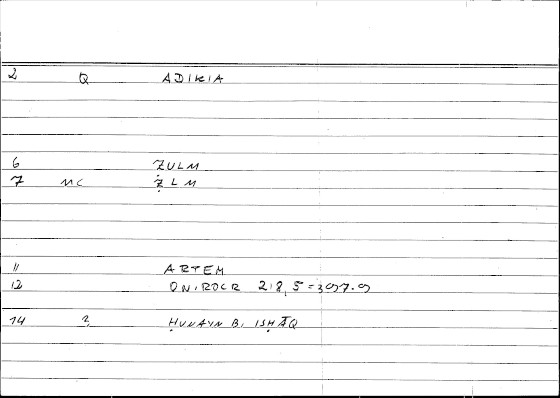 2 Q ADIKIA
6 ẒULM
7 MC ẒLM
11 ARTEM
12 ONIROCR 218,5=397.9
14 2 ḤUNAYN B. ISḤĀQ